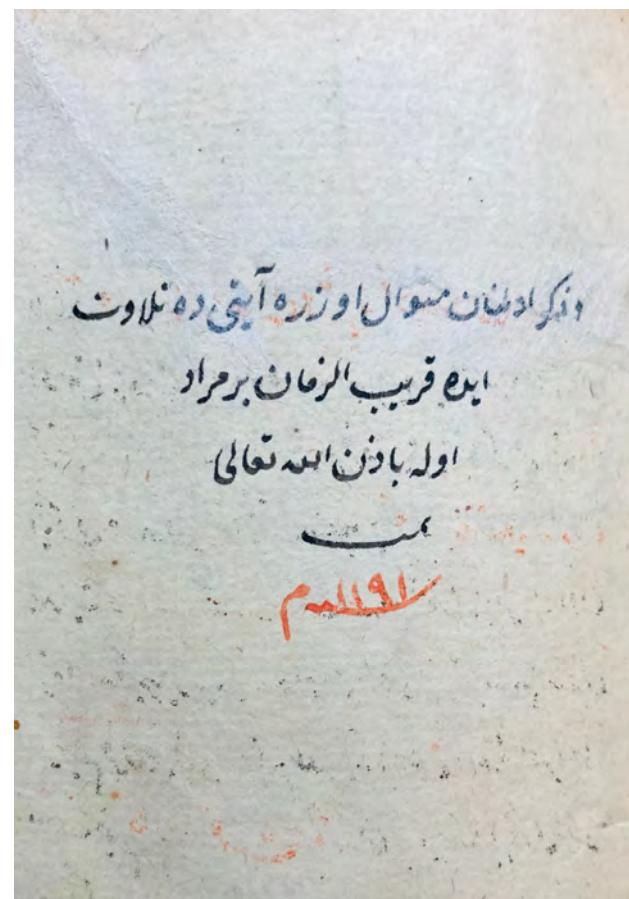 و ذكر اولنان منوال اوزره آيتى ده تلاوت
ايده قريب الزمان بر مراد
اوله باذن الله تعالى
تمت
م ١١٩١